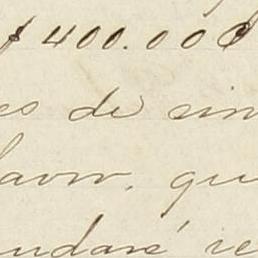 400.00
es de sin
favor, qu
ndaré re